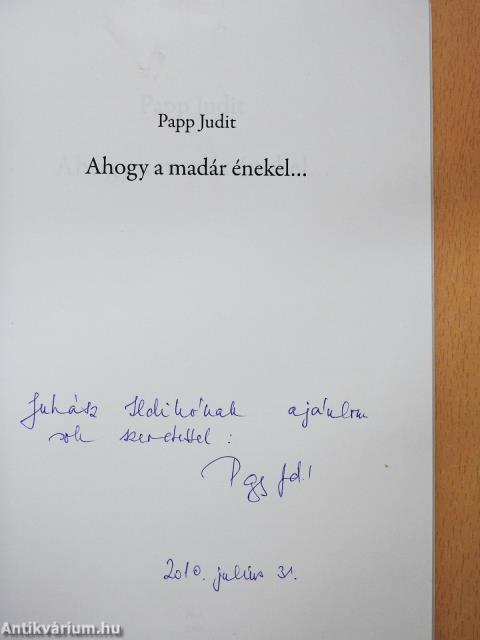 Papp Judit
Ahogy a madár énekel...
Juhász Ildikónak ajánlom
sok szeretettel :
2010. július 31.
Antikvárium.hu